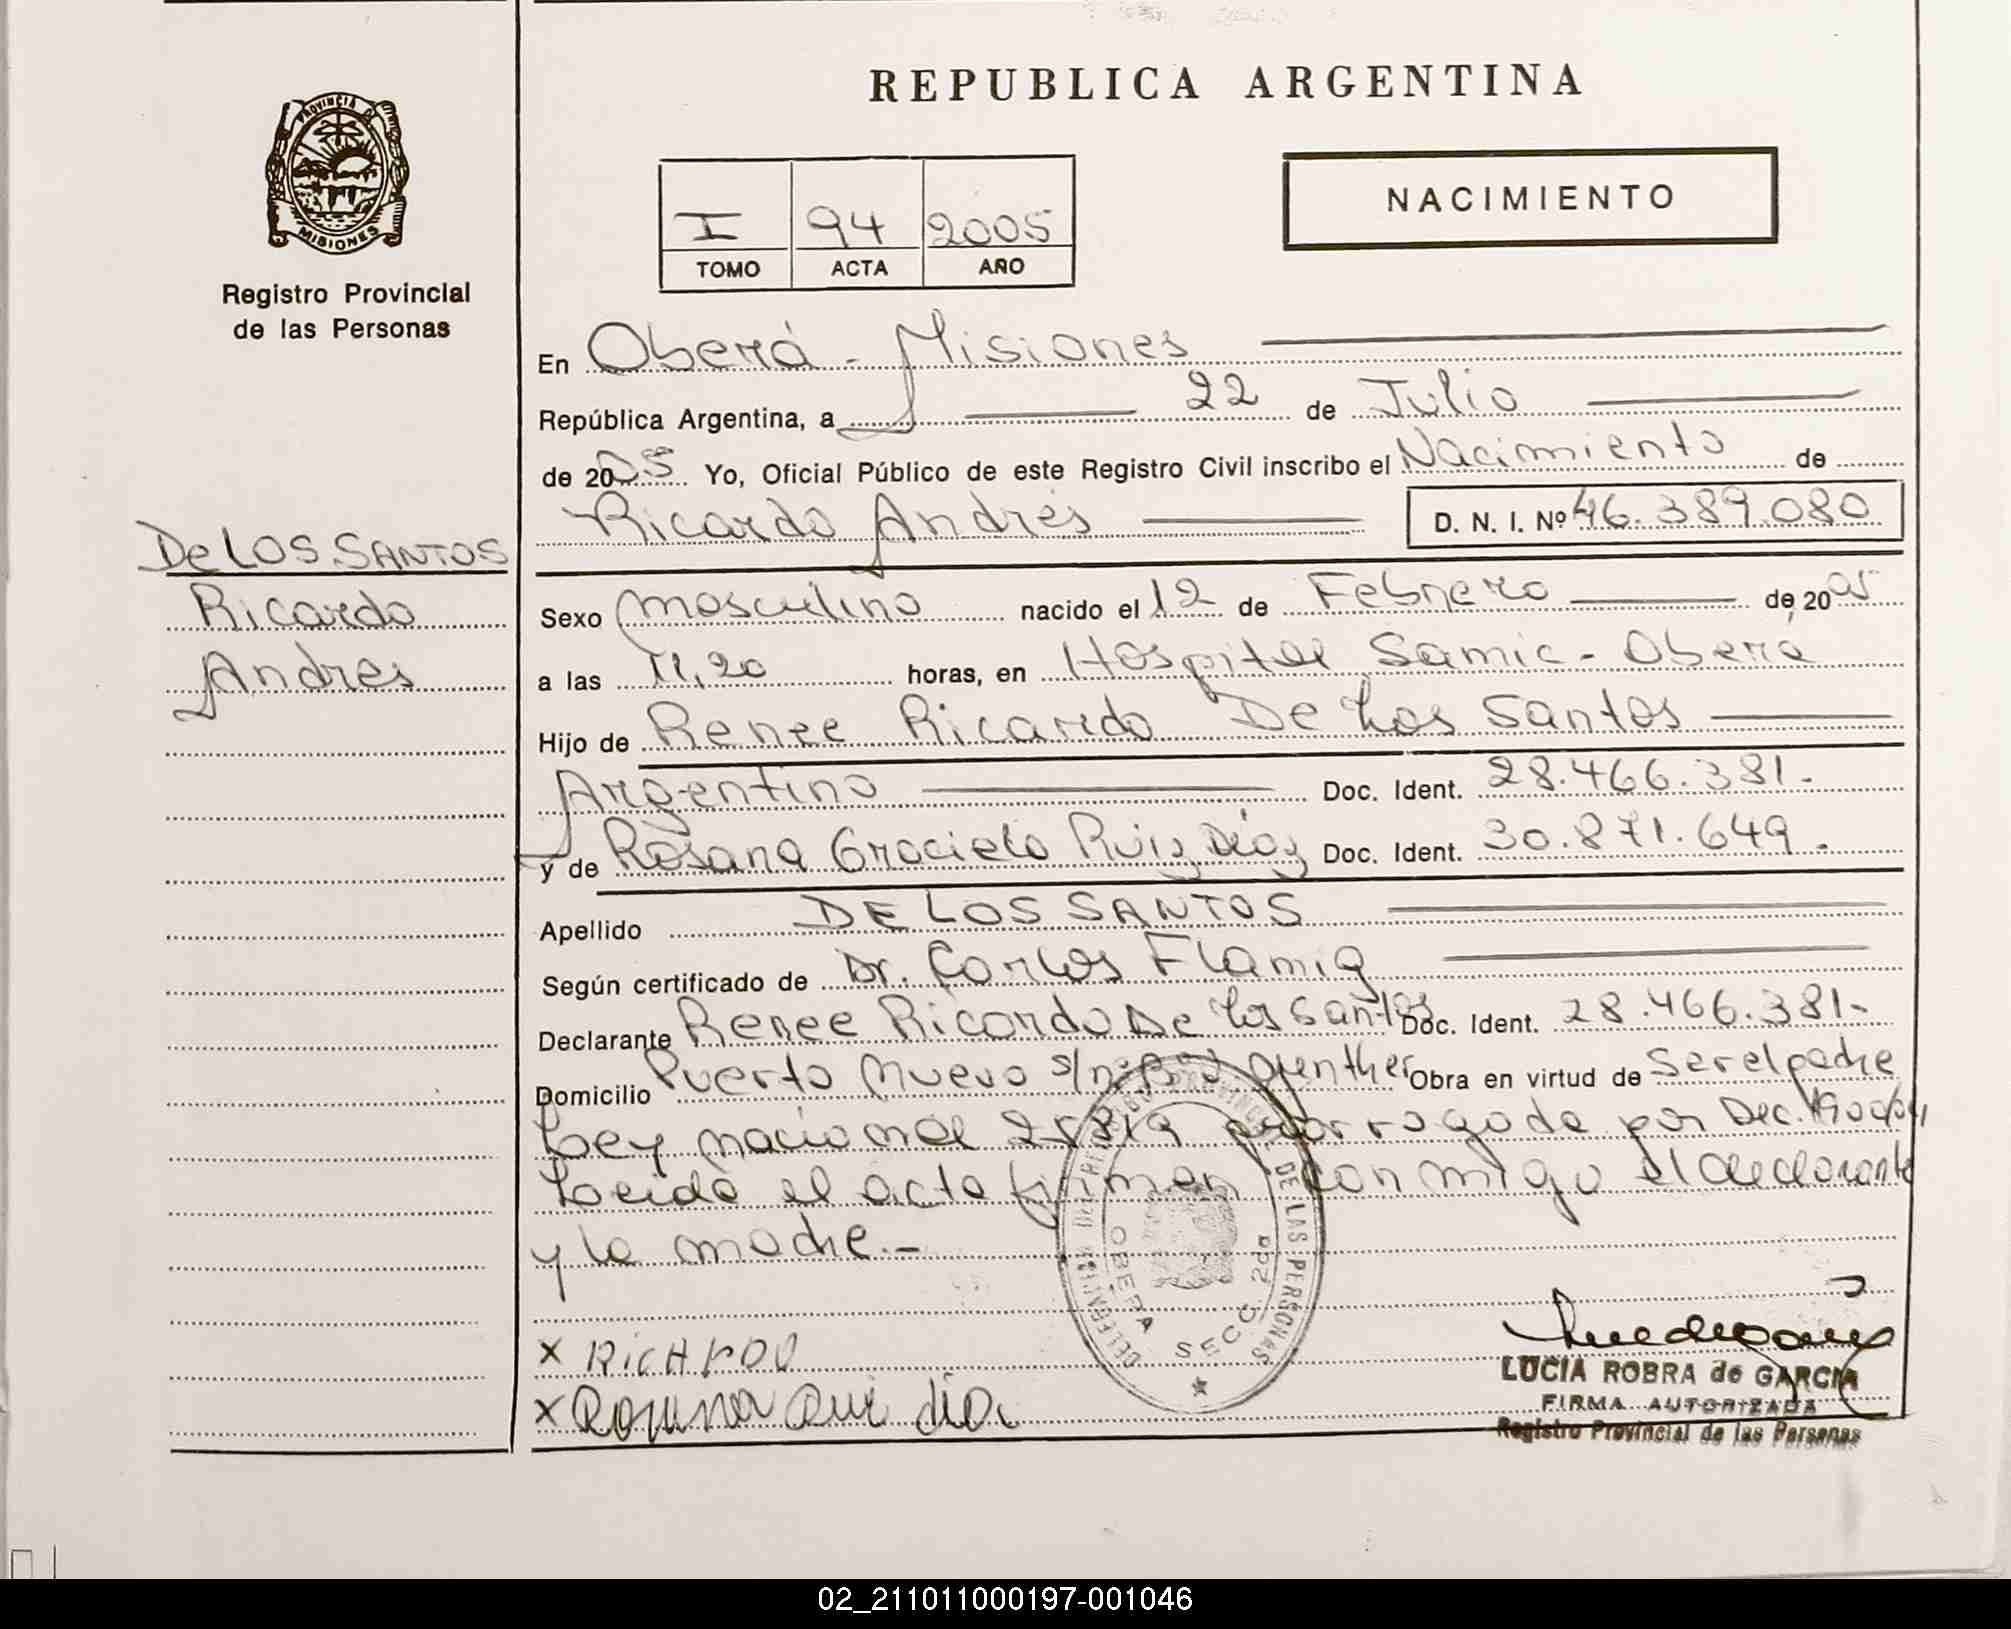 REPUBLICA ARGENTINA
PROVINCIA DE
MISIONES
Registro Provincial
de las Personas
I 94 2005
TOMO ACTA AÑO
NACIMIENTO
En Oberá - Misiones
República Argentina, a 22 de Julio
de 2005 Yo, Oficial Público de este Registro Civil inscribo el Nacimiento de
Ricardo Andrés D. N. I. Nº 46.389.080
De LOS SANTOS
Ricardo
Andres
Sexo masculino nacido el 12 de Febrero de 2005
a las 11,20 horas, en Hospital Samic - Obera
Hijo de Renee Ricardo De Los Santos
Argentino Doc. Ident. 28.466.381.
y de Rosana Graciela Ruiz Díaz Doc. Ident. 30.871.649.
Apellido DE LOS SANTOS
Según certificado de Dr. Carlos Flamig
Declarante Renee Ricardo De Los Santos Doc. Ident. 28.466.381-
Domicilio Puerto Nuevo s/nº Bº Gunther Obra en virtud de Ser el padre
Ley nacional 25819 prorrogada por Dec.
Leida el acta firman conmigo el declarante
y la madre.-
DELEGACION DEL REGISTRO PROVINCIAL DE LAS PERSONAS
OBERA SECC. 2da
x RicHARDO
x Rosana Rui dia
LUCIA ROBRA de GARCIA
FIRMA AUTORIZADA
Registro Provincial de las Personas
02_211011000197-001046